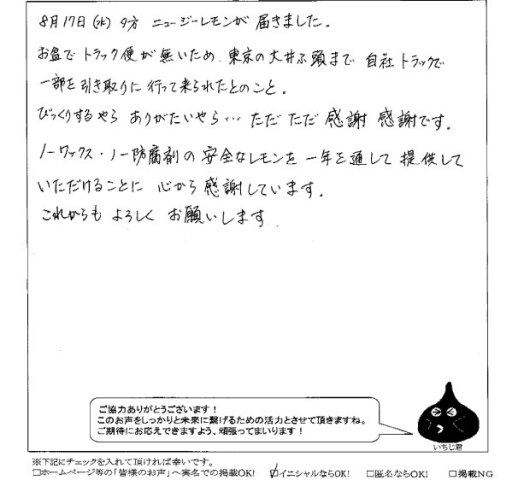 8月17日(水) 夕方 ニュージーレモンが 届きました.
お盆で トラック便が 無いため 東京の大井ふ頭まで 自社トラックで
一部を引き取りに 行って来られたとのこと.
びっくりするやら ありがたいやら… ただ ただ 感謝 感謝です.
ノーワックス・ノー防腐剤の 安全なレモンを 一年を通して 提供して
いただけることに 心から 感謝しています.
これからも よろしく お願いします.
ご協力ありがとうございます!
このお声をしっかりと未来に繋げるための活力とさせて頂きますね。
ご期待にお応えできますよう、頑張ってまいります!
いちじ君
※下記にチェックを入れて頂ければ幸いです。
□ホームページ等の「皆様のお声」へ実名での掲載OK! ☑イニシャルならOK! □匿名ならOK! □掲載NG